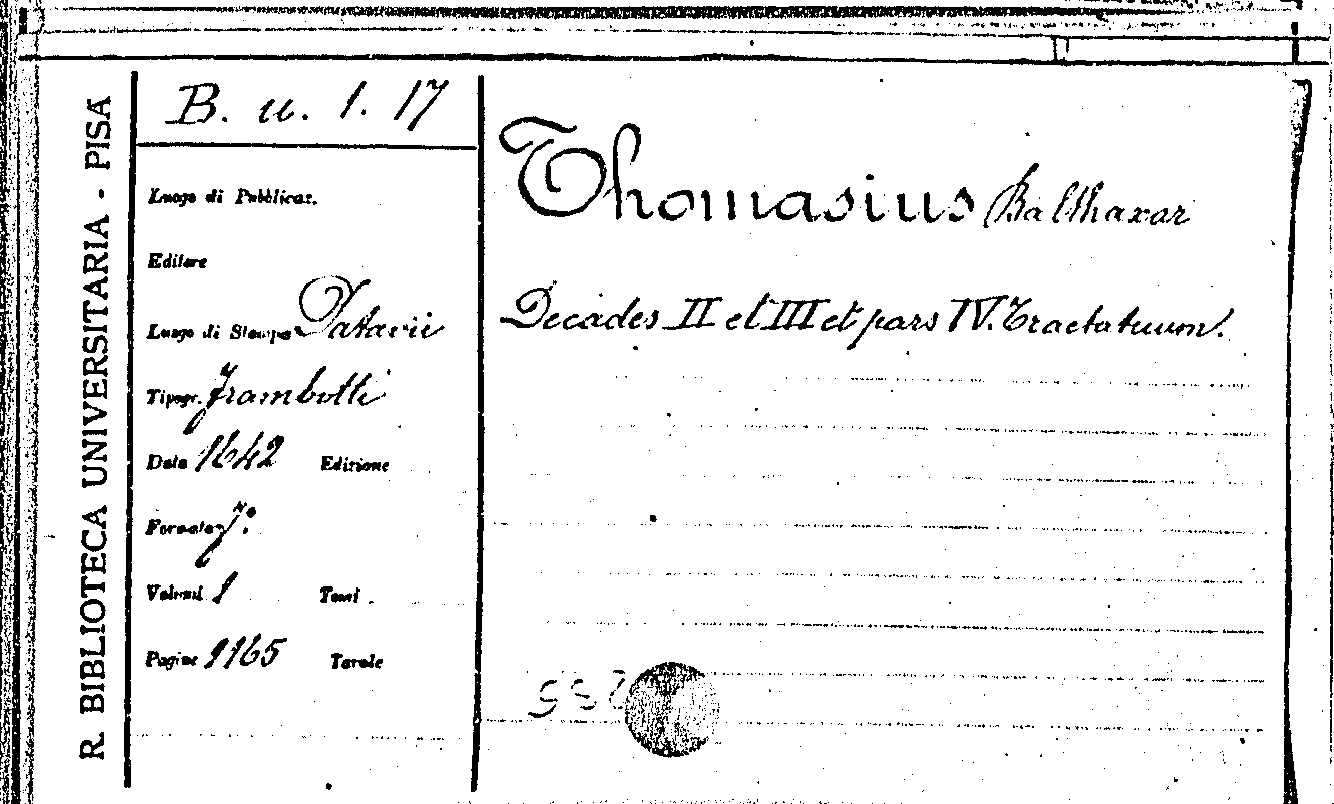 R. BIBLIOTECA UNIVERSITARIA - PISA
B. u. 1. 17
Luogo di Pubblicaz.
Editore
Luogo di Stampa Patavii
Tipogr. Frambotti
Data 1642 Edizione
Formato fº.
Volumi 1 Tomi
Pagine 1165 Tavole
Thomasius Balthaxar
Decades II et III et pars IV. Tractatuum.